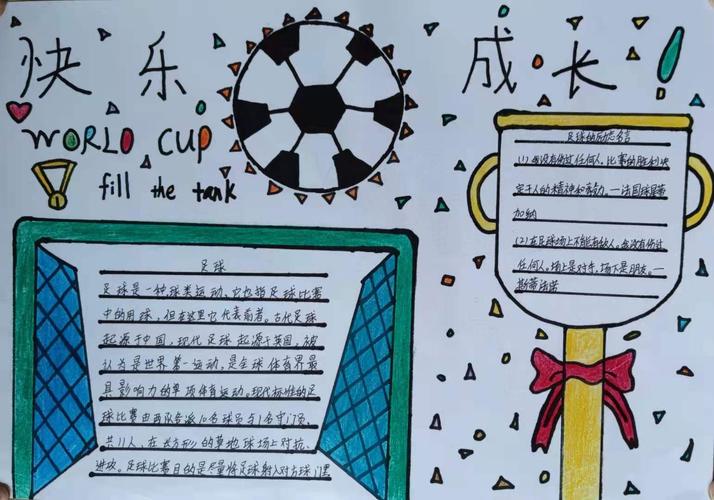 快乐
成长!
WORLD CUP
fill the tank
足球
足球是一种球类运动,它也指足球比赛
中的用球,但在这里它代表前者。古代足球
起源于中国,现代足球起源于英国,被
认为是世界第一运动,是全球体育界最
具影响力的单项体育运动。现代标准的足
球比赛由两队各派10名球员与1名守门员,
共11人,在长方形的草地球场上对抗、
进攻。足球比赛目的是尽量将足球射入对方球门里
足球的励志名言
(1)我没有伤过任何人,比赛的胜利决
定于人的精神和努力。—法国球星
加纳
(2)在足球场上不能有敌人,我没有伤过
任何人,场上是对手,场下是朋友。—
斯蒂法诺